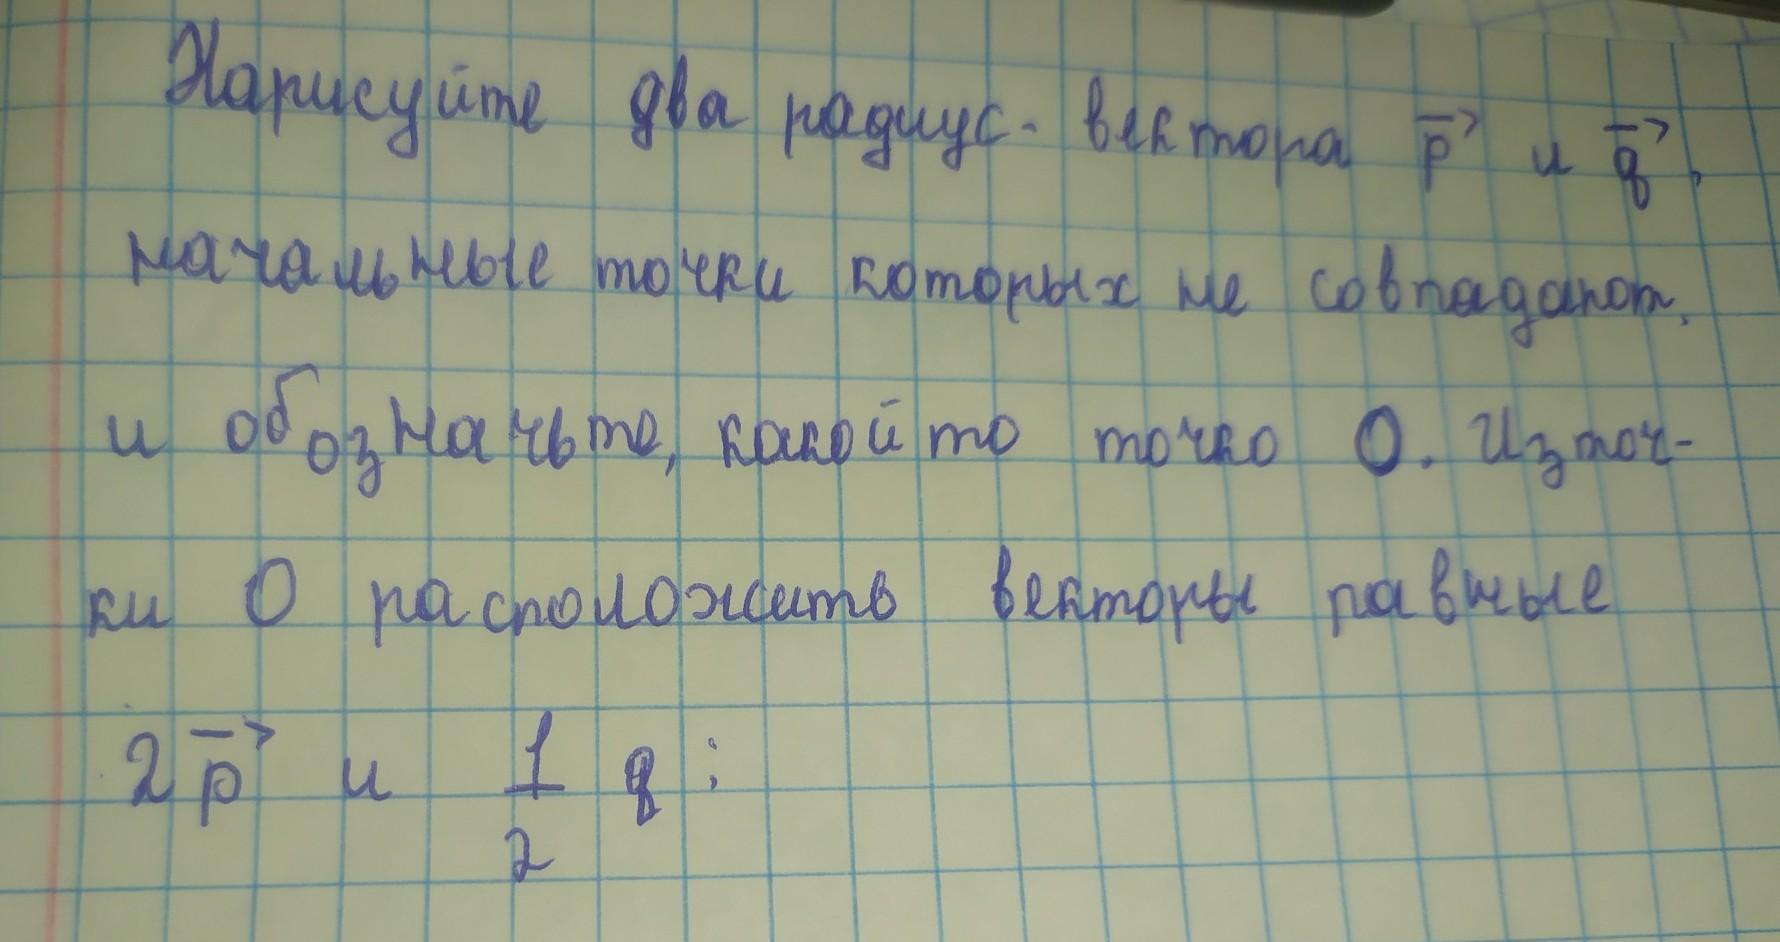 Нарисуйте два радиус- вектора p⃗ и q⃗,
начальные точки которых не совпадают,
и обозначьте, какой то точко О. Из точ-
ки О расположить векторы равные
2p⃗ и 1/2 q;